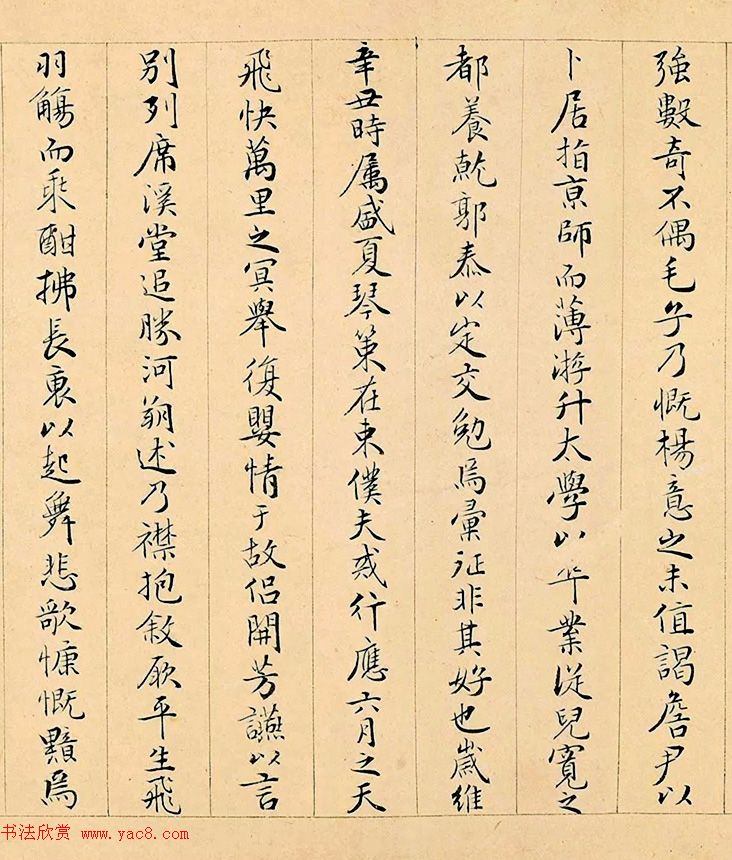 強數奇不偶毛子乃慨楊意之未值謁詹尹以
卜居指京師而薄游升太學以卒業從兒寬之
都養乾郭泰以定交勉焉彙征非其好也歲維
辛丑時属盛夏琴策在東僕夫戒行應六月之天
飛快萬里之冥舉復嬰情于故侶開芳讌以言
別列席溪堂追勝河朔述乃襟抱敘厥平生飛
羽觴而乘酣拂長裏以起舞悲歌慷慨黯焉
书法欣赏 www.yac8.com